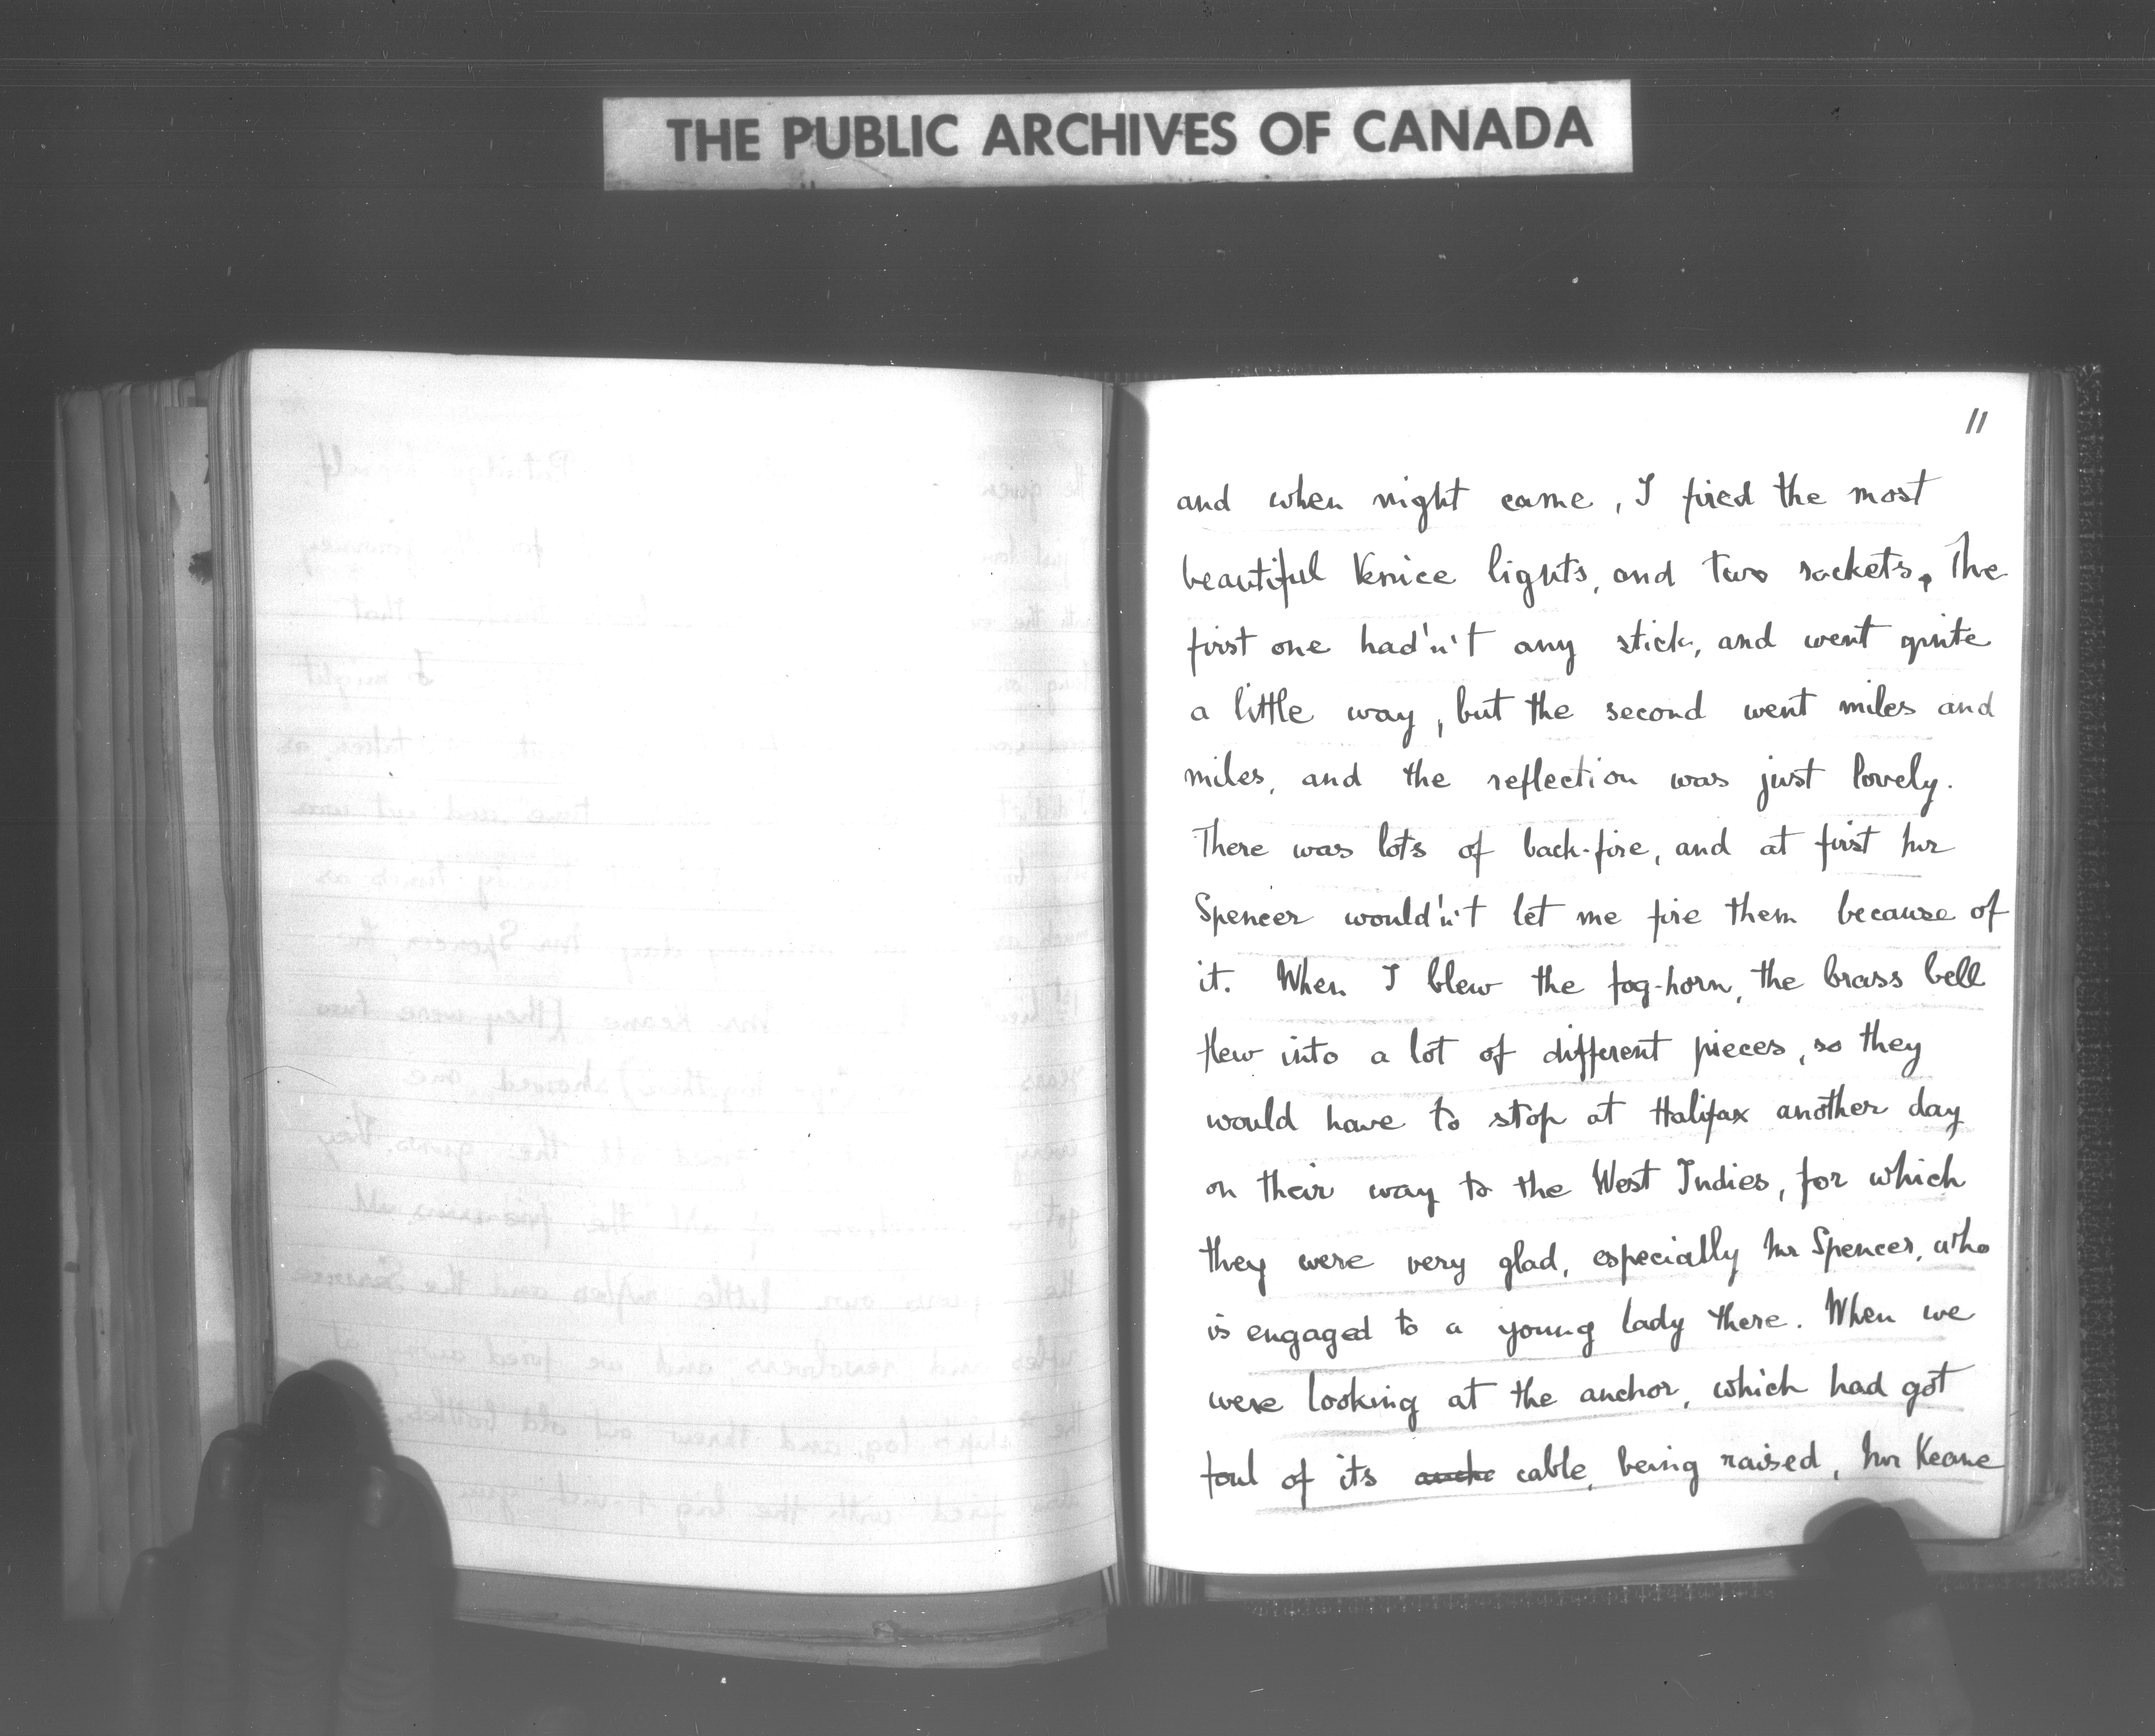 THE PUBLIC ARCHIVES OF CANADA
11
and when night came, I fired the most
beautiful Venice lights, and two rockets. The
first one had'n't any stick, and went quite
a little way, but the second went miles and
miles, and the reflection was just lovely.
There was lots of back-fire, and at first Mr
Spencer would'n't let me fire them because of
it. When I blew the fog-horn, the brass bell
flew into a lot of different pieces, so they
would have to stop at Halifax another day
on their way to the West Indies, for which
they were very glad, especially Mr Spencer, who
is engaged to a young lady there. When we
were looking at the anchor, which had got
foul of its cable, being raised, Mr Keane